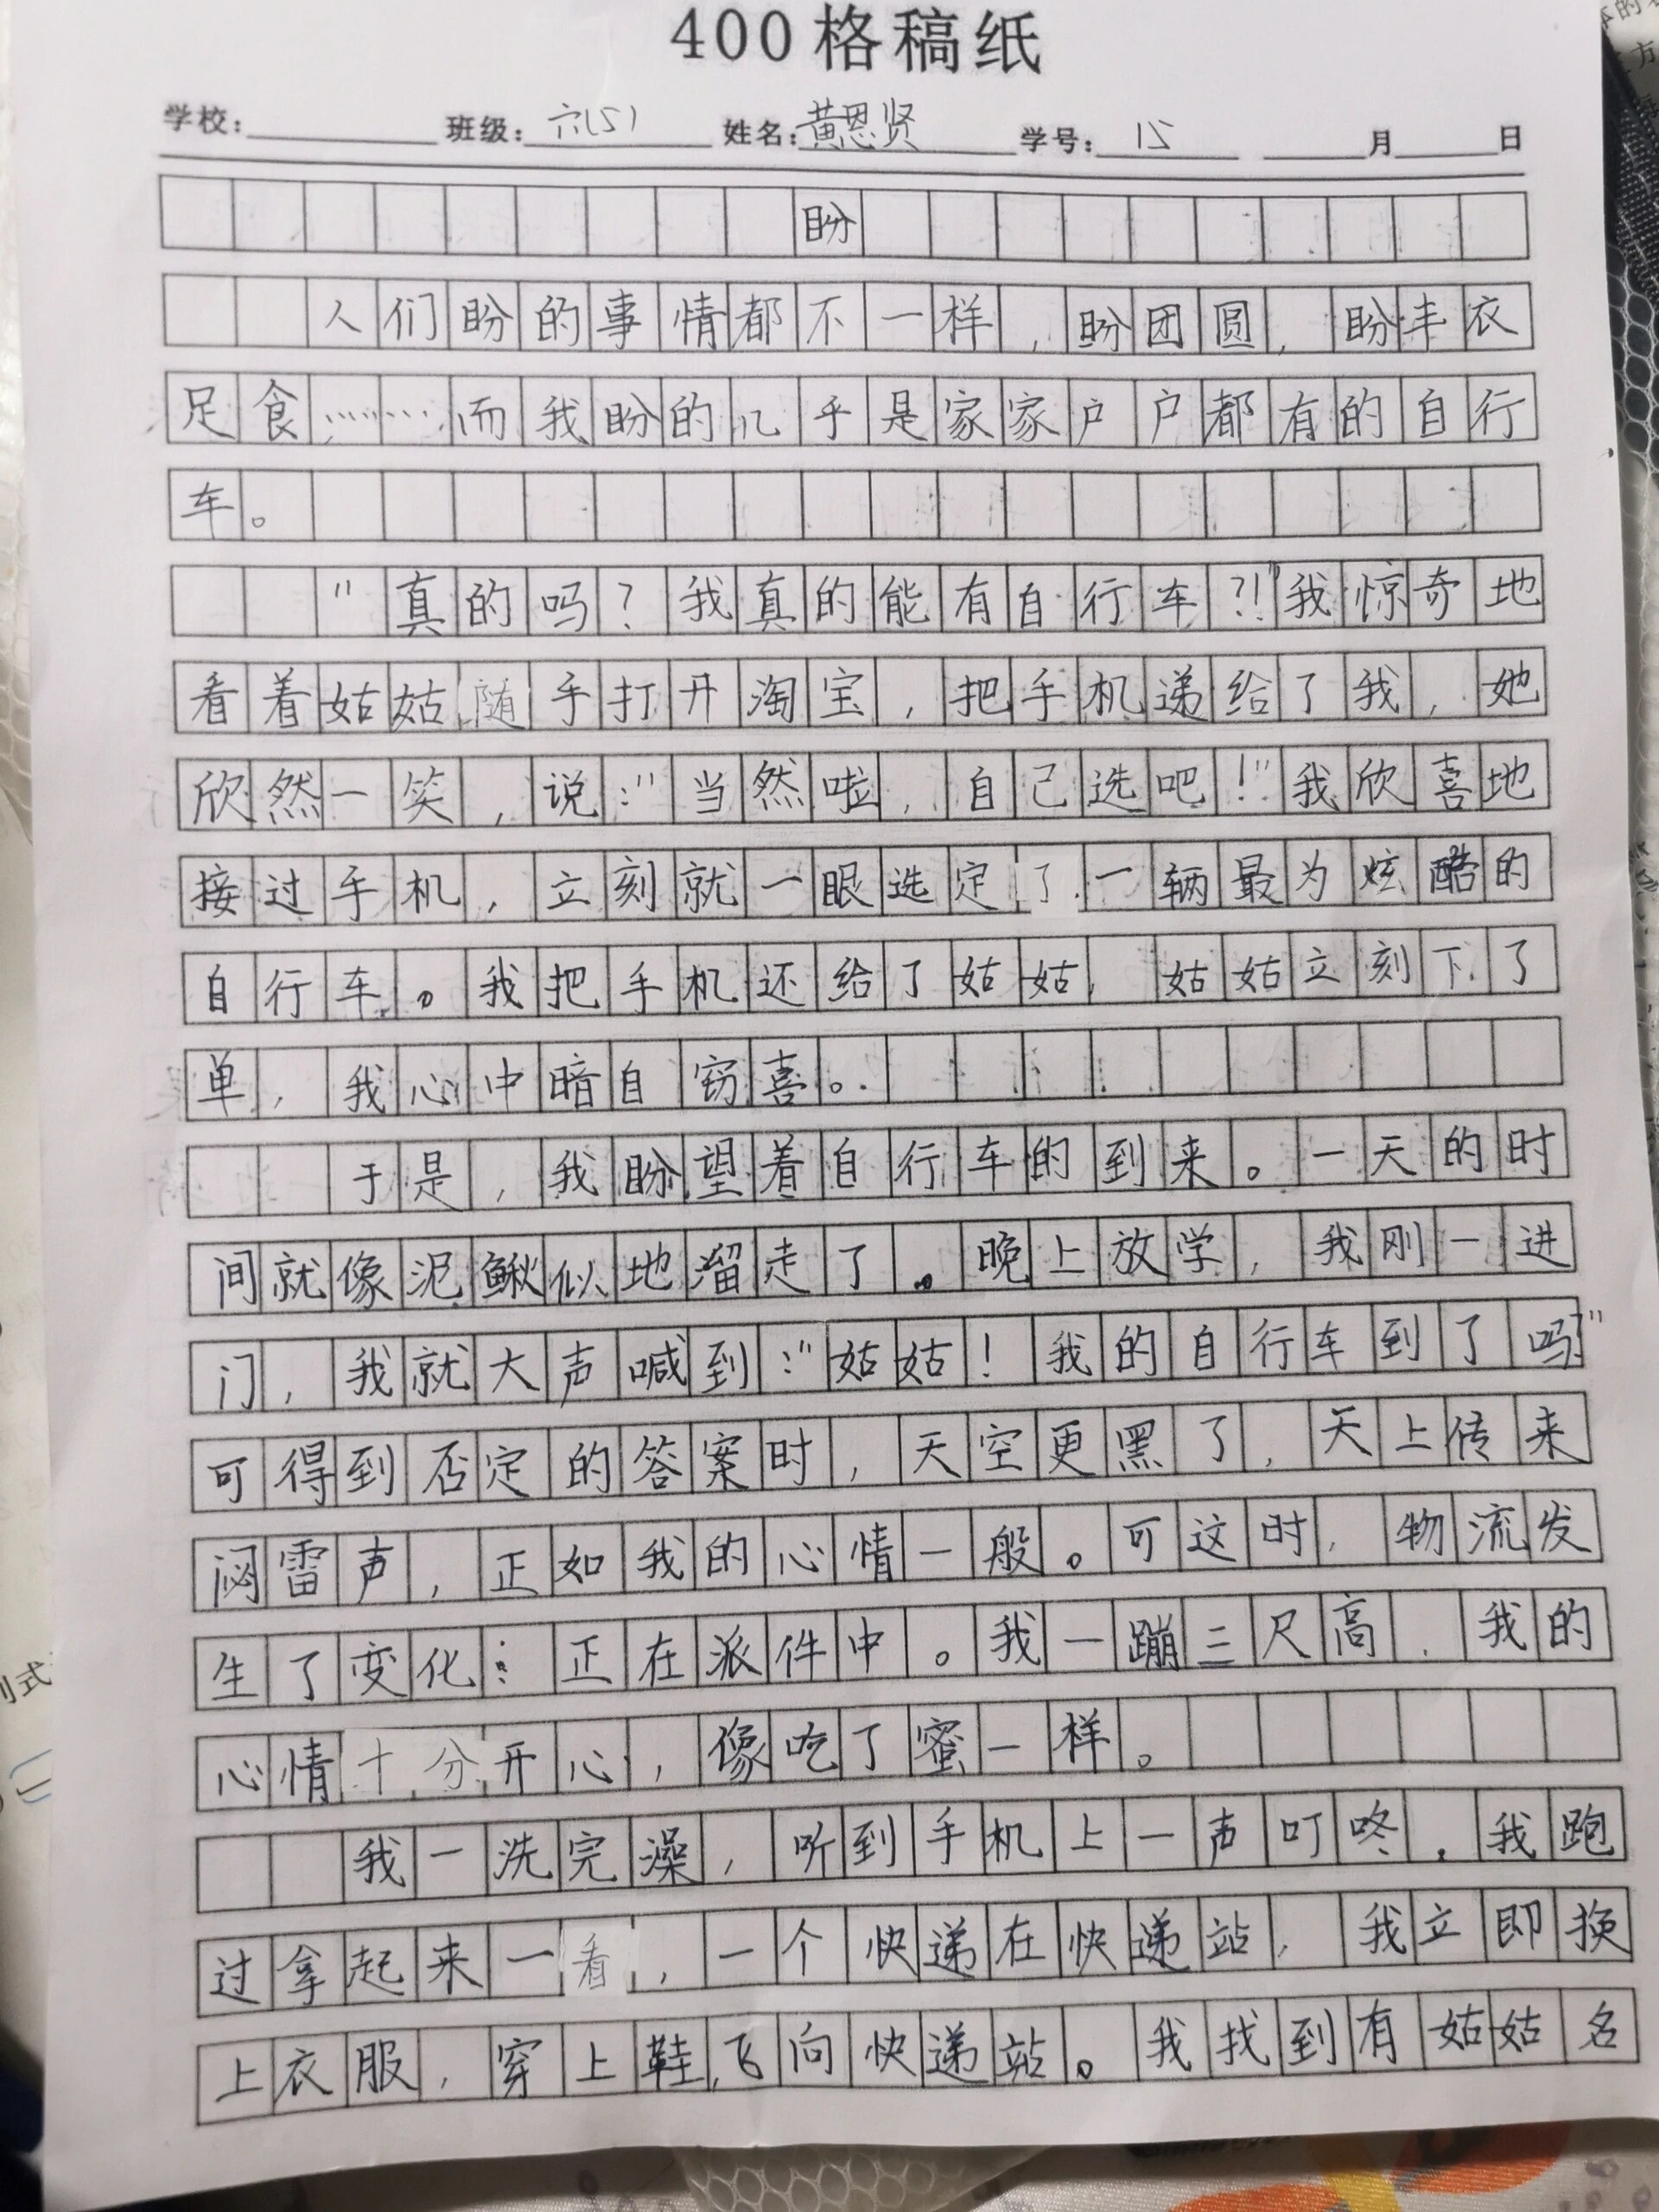 400格稿纸
学校: 班级: 六(5) 姓名: 黄恩贤 学号: 15 月 日
盼
人们盼的事情都不一样,盼团圆,盼丰衣
足食……而我盼的几乎是家家户户都有的自行
车。
"真的吗?我真的能有自行车?!"我惊奇地
看着姑姑随手打开淘宝,把手机递给了我,她
欣然一笑,说:"当然啦,自己选吧!"我欣喜地
接过手机,立刻就一眼选定了一辆最为炫酷的
自行车。我把手机还给了姑姑,姑姑立刻下了
单,我心中暗自窃喜。
于是,我盼望着自行车的到来。一天的时
间就像泥鳅似地溜走了。晚上放学,我刚一进
门,我就大声喊到:"姑姑!我的自行车到了吗?"
可得到否定的答案时,天空更黑了,天上传来
闷雷声,正如我的心情一般。可这时,物流发
生了变化:正在派件中。我一蹦三尺高,我的
心情十分开心,像吃了蜜一样。
我一洗完澡,听到手机上一声叮咚,我跑
过拿起来一看,一个快递在快递站,我立即换
上衣服,穿上鞋,飞向快递站。我找到有姑姑名